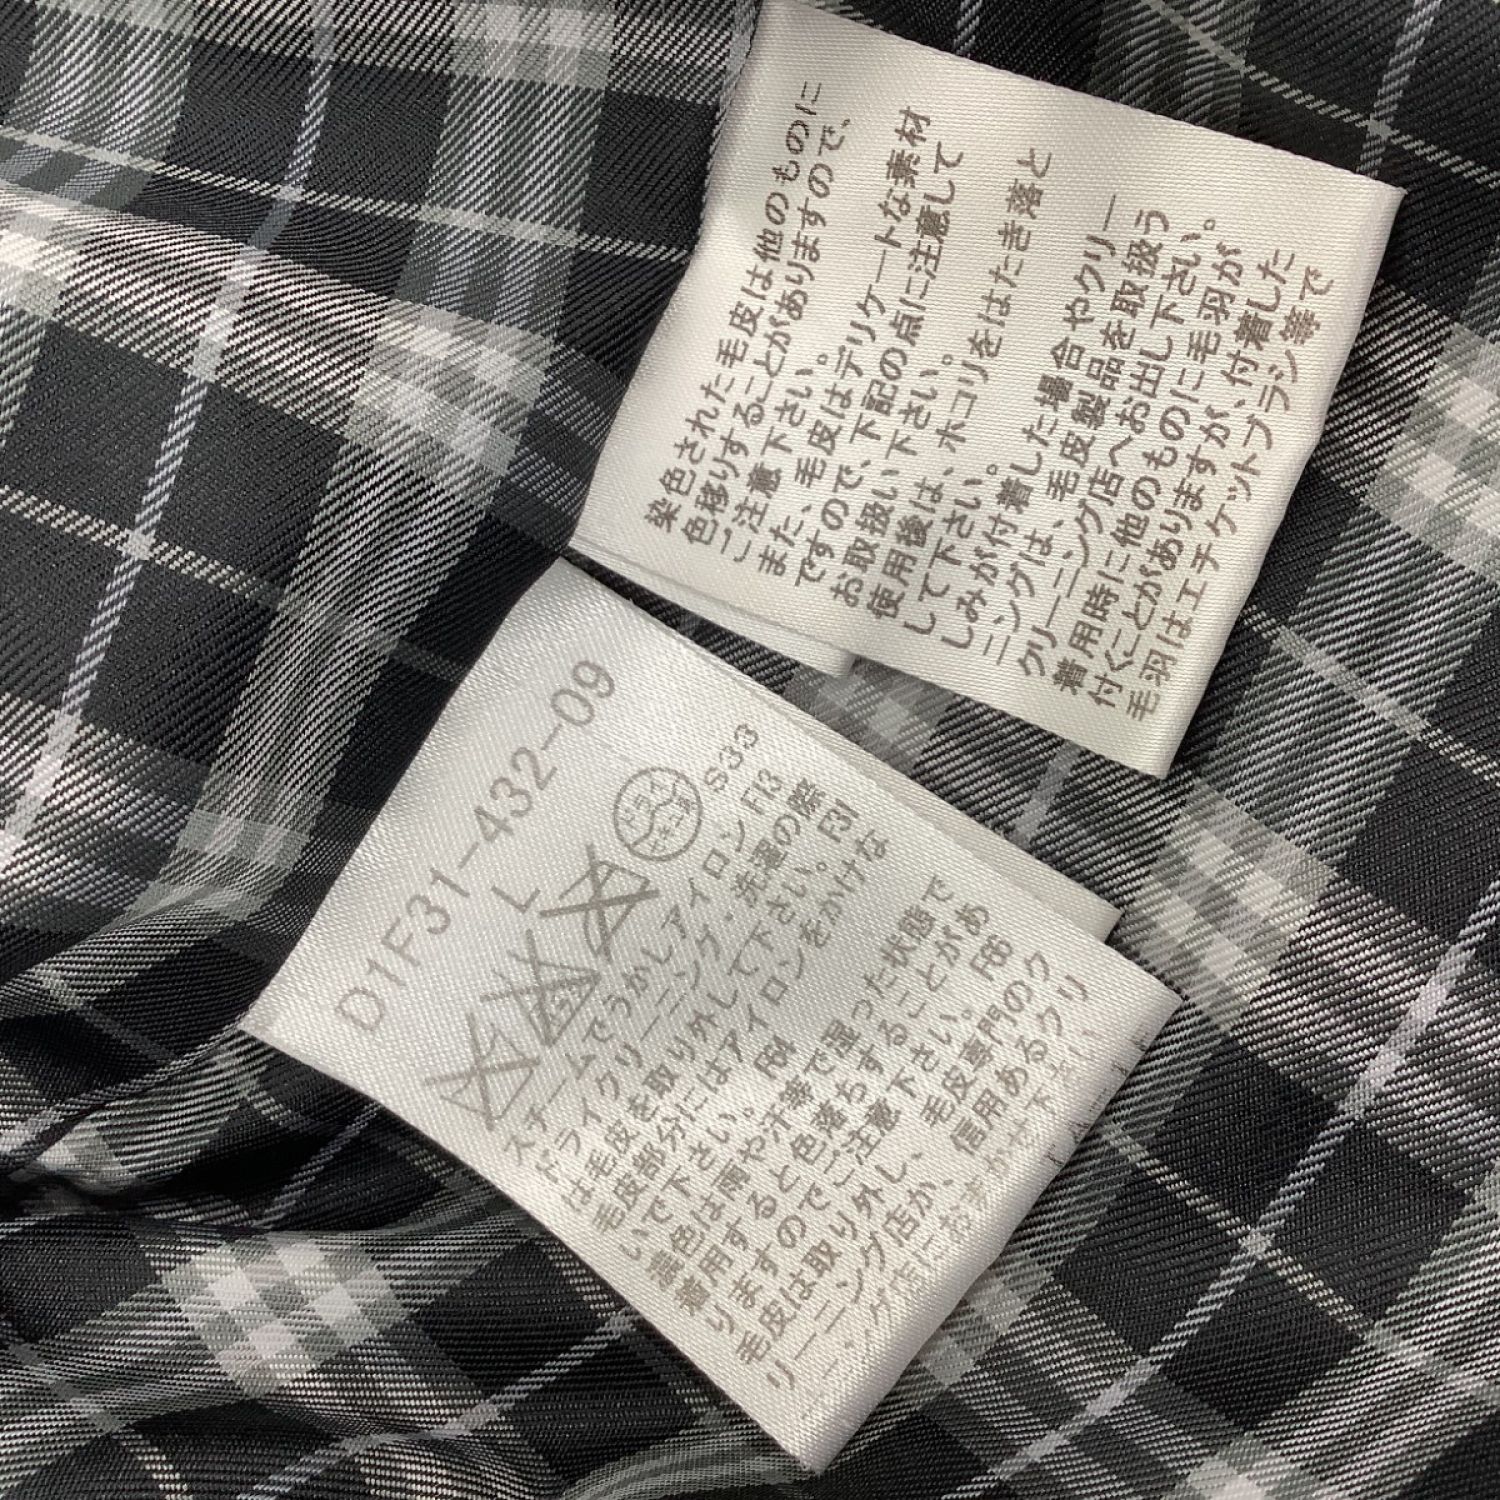 染色された毛皮は他のものに
色移りすることがありますので、
ご注意下さい。
また、毛皮はデリケートな素材
ですので、下記の点に注意して
お取扱い下さい。
使用後は、ホコリをはたき落と
して下さい。
しみが付着した場合やクリー
ニングは、毛皮製品を取扱う
クリーニング店へお出し下さい。
着用時に他のものに毛羽が
付くことがありますが、付着した
毛羽はエチケットブラシ等で
D1F31-432-09
L
ドライ
S33
スチームでうかしアイロン F13
ドライクリーニング・洗濯の際
は毛皮を取り外して下さい。 F31
毛皮部分にはアイロンをかけな
いで下さい。 F64
濃色は雨や汗等で湿った状態で
着用すると色落ちすることがあ
りますのでご注意下さい。 F66
毛皮は取り外し、毛皮専門のク
リーニング店か、信用あるクリ
ーニング店にお